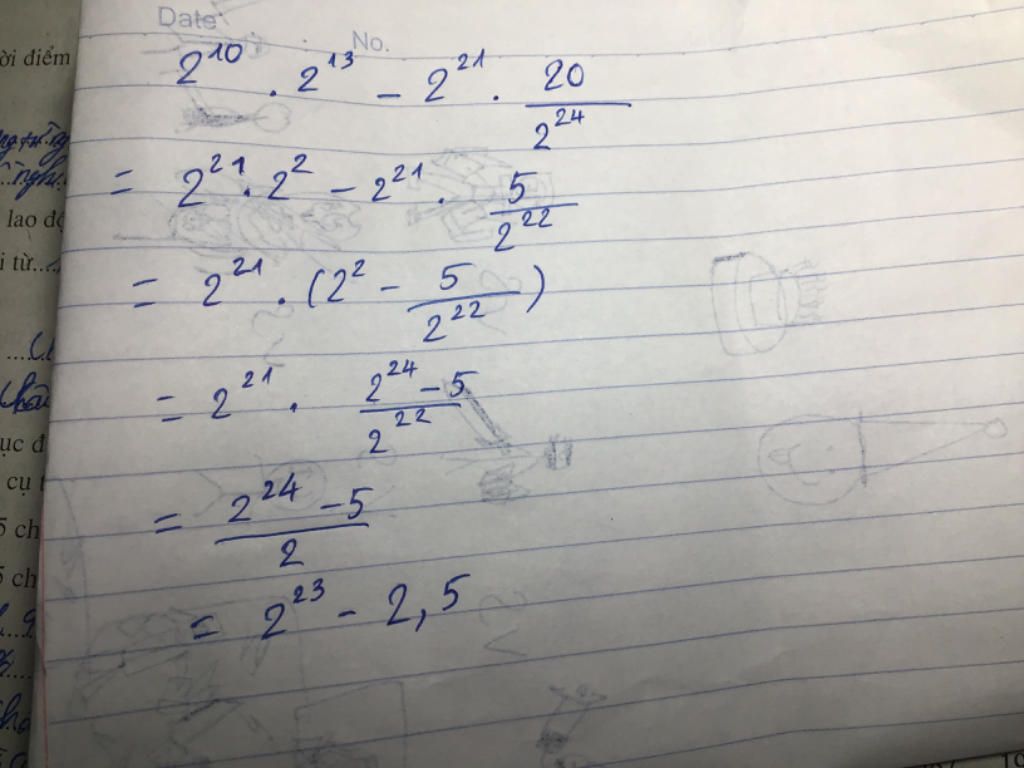 Date
No.
ời điểm
2^10 . 2^13 - 2^21 . 20/2^24
= 2^21 . 2^2 - 2^21 . 5/2^22
lao độ
i từ....
= 2^21 . (2^2 - 5/2^22)
= 2^21 . (2^24 - 5)/2^22
ục đ
cụ t
= (2^24 - 5)/2
5 ch
5 ch
= 2^23 - 2,5